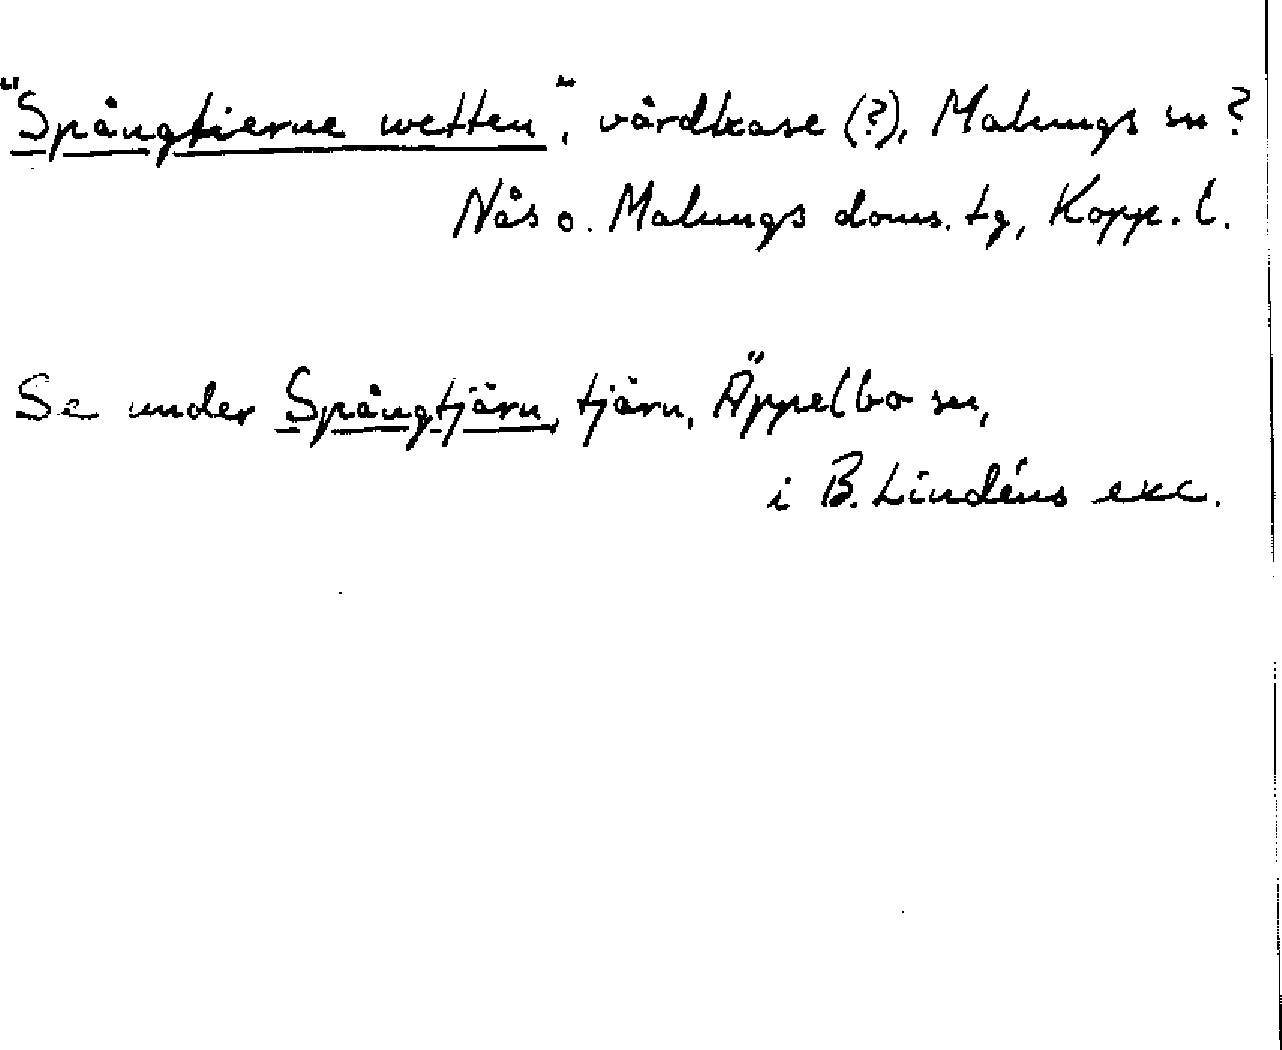 "Spångtierne wetten", vårdkase (?), Malungs sn?
Nås o. Malungs doms. tg, Kopp. l.
Se under Spångtjärn, tjärn, Äppelbo sn,
i B. Lindéns exc.